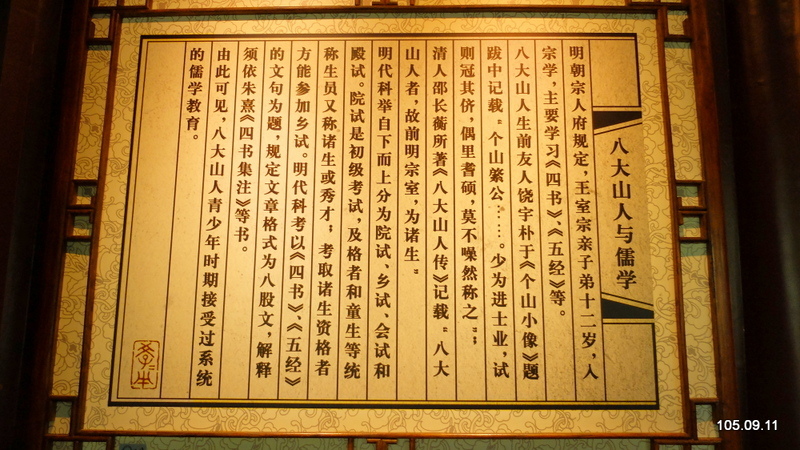 八大山人与儒学
明朝宗人府规定，王室宗亲子弟十二岁，入
宗学，主要学习《四书》、《五经》等。
八大山人生前友人饶宇朴于《个山小像》题
跋中记载“个山綮公……。少为进士业，试
则冠其侪，偶里耆硕，莫不噪然称之”；
清人邵长蘅所著《八大山人传》记载“八大
山人者，故前明宗室，为诸生”
明代科举自下而上分为院试、乡试、会试和
殿试。院试是初级考试，及格者和童生等统
称生员又称诸生或秀才；考取诸生资格者
方能参加乡试。明代科考以《四书》、《五经》
的文句为题，规定文章格式为八股文，解释
须依朱熹《四书集注》等书。
由此可见，八大山人青少年时期接受过系统
的儒学教育。
105.09.11